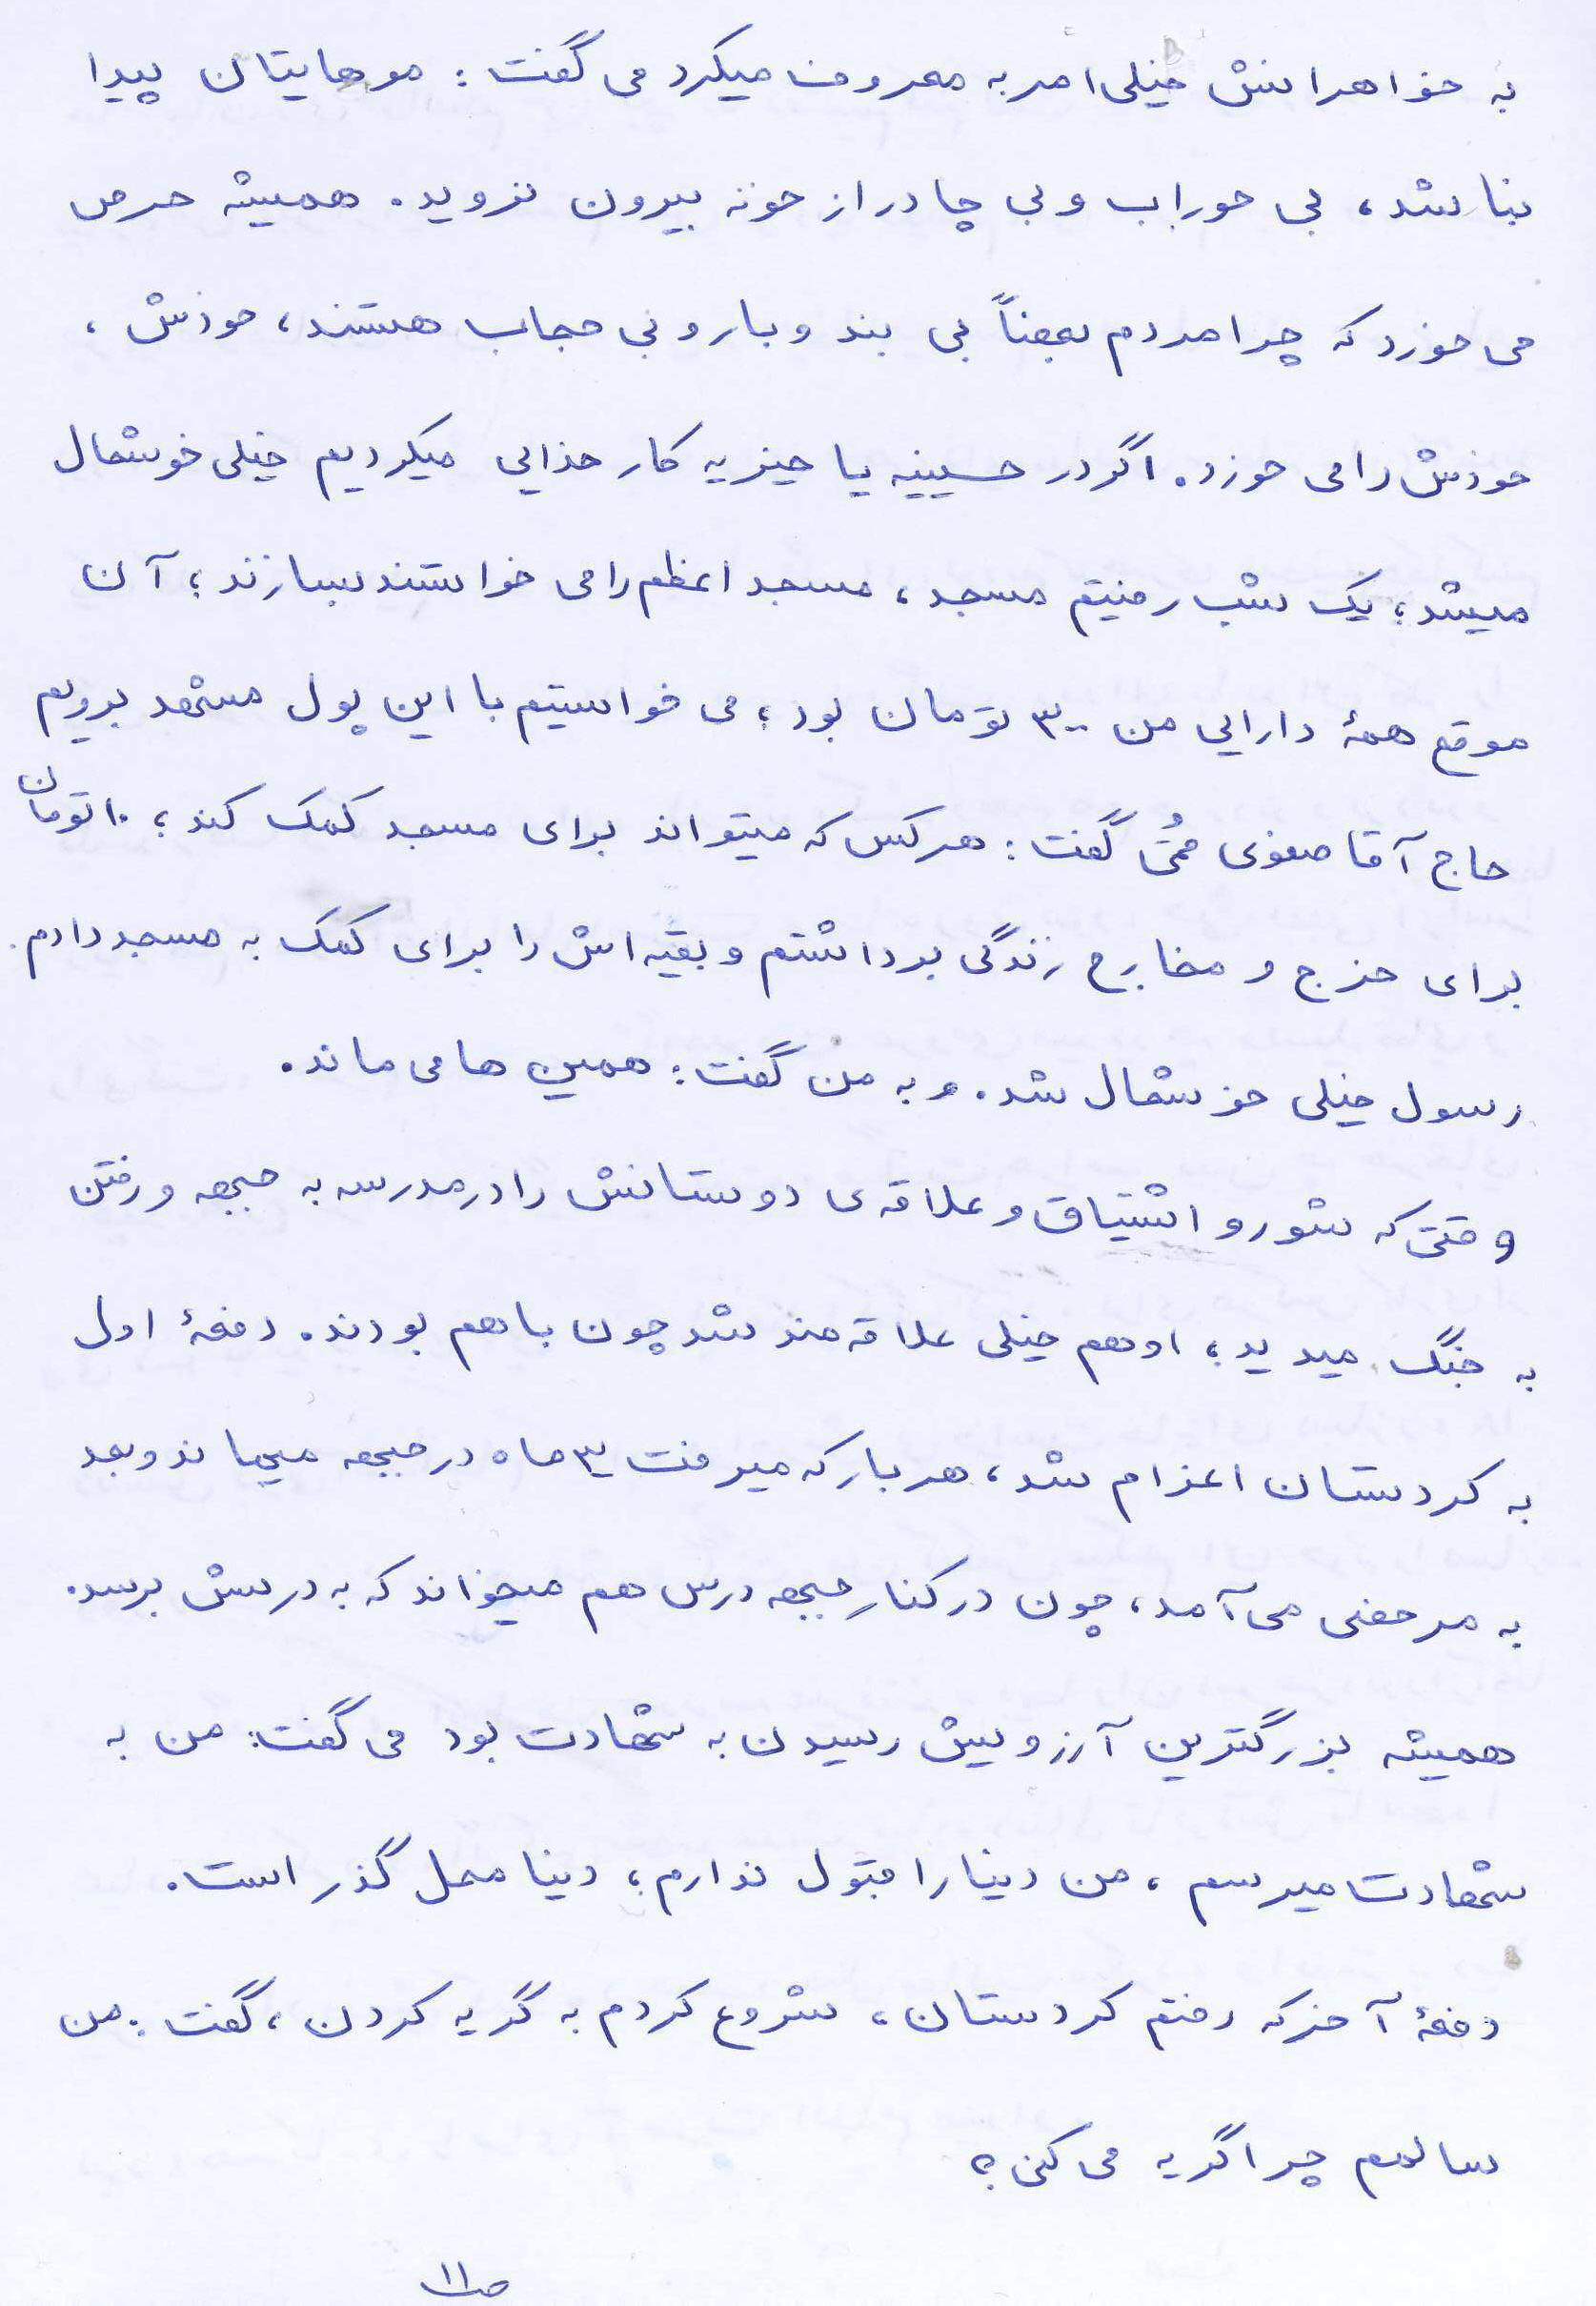 به خواهرانش خیلی امر به معروف میکرد می گفت: موهایتان پیدا
نباشد، بی جوراب و بی چادر از خونه بیرون نروید. همیشه حرص
می خورد که چرا مردم بعضاً بی بند و بار و بی حجاب هستند، خودش،
خودش را می خورد. اگر در حسینیه یا خیریه کار خدایی میکردیم خیلی خوشحال
میشد؛ یک شب رفتیم مسجد، مسجد اعظم را می خواستند بسازند؛ آن
موقع همهٔ دارایی من ۳۰۰ تومان بود؛ می خواستیم با این پول مشهد برویم
حاج آقا صفوی قمُی گفت: هر کس که میتواند برای مسجد کمک کند؛ ۱۰ تومان
برای خرج و مخارج زندگی برداشتم و بقیه اش را برای کمک به مسجد دادم.
رسول خیلی خوشحال شد. و به من گفت: همین ها می ماند.
وقتی که شور و اشتیاق و علاقه ی دوستانش را در مدرسه به جبهه و رفتن
به جنگ میدید؛ او هم خیلی علاقه مند شد چون با هم بودند. دفعهٔ اول
به کردستان اعزام شد، هر بار که میرفت ۳ ماه در جبهه میماند و بعد
به مرخصی می آمد، چون در کنار جبهه درس هم میخواند که به درسش برسد.
همیشه بزرگترین آرزویش رسیدن به شهادت بود می گفت: من به
شهادت میرسم، من دنیا را قبول ندارم؛ دنیا محل گذر است.
دفعهٔ آخر که رفتم کردستان، شروع کردم به گریه کردن، گفت: من
سالمم چرا گریه می کنی؟
ص۱۱